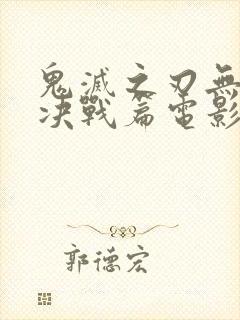 鬼滅之刃無
决戰篇電影
郭德宏